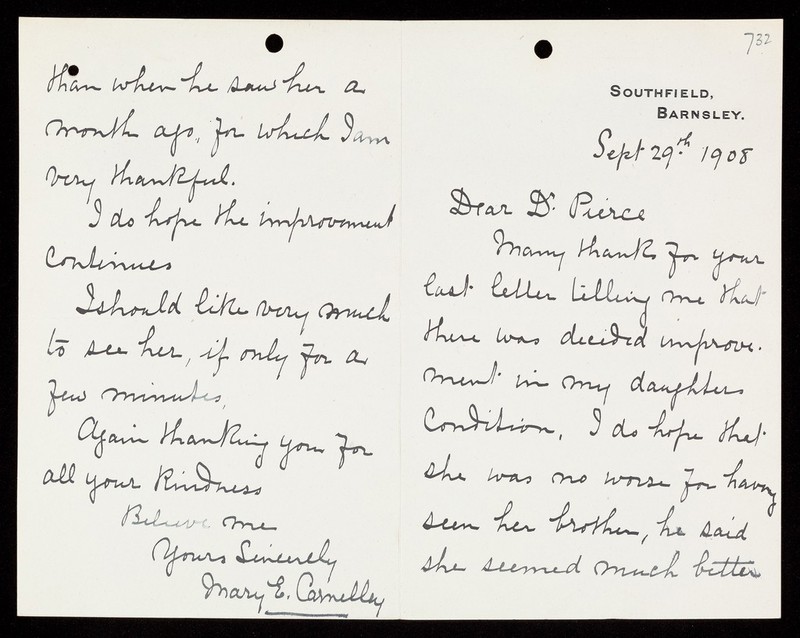 732
SOUTHFIELD,
BARNSLEY.
Sept 29th 1908
Dear Dr. Pierce
Many thanks for your
last letter telling me that
there was decided improve-
ment in my daughters
condition, I do hope that
she was no worse for having
seen her brother, he said
she seemed much better
than when he saw her a
month ago, for which I am
very thankful.
I do hope the improvement
continues
I should like very much
to see her, if only for a
few minutes,
Again thanking you for
all your kindness
Believe me
Yours Sincerely
Mary E. Carnelley